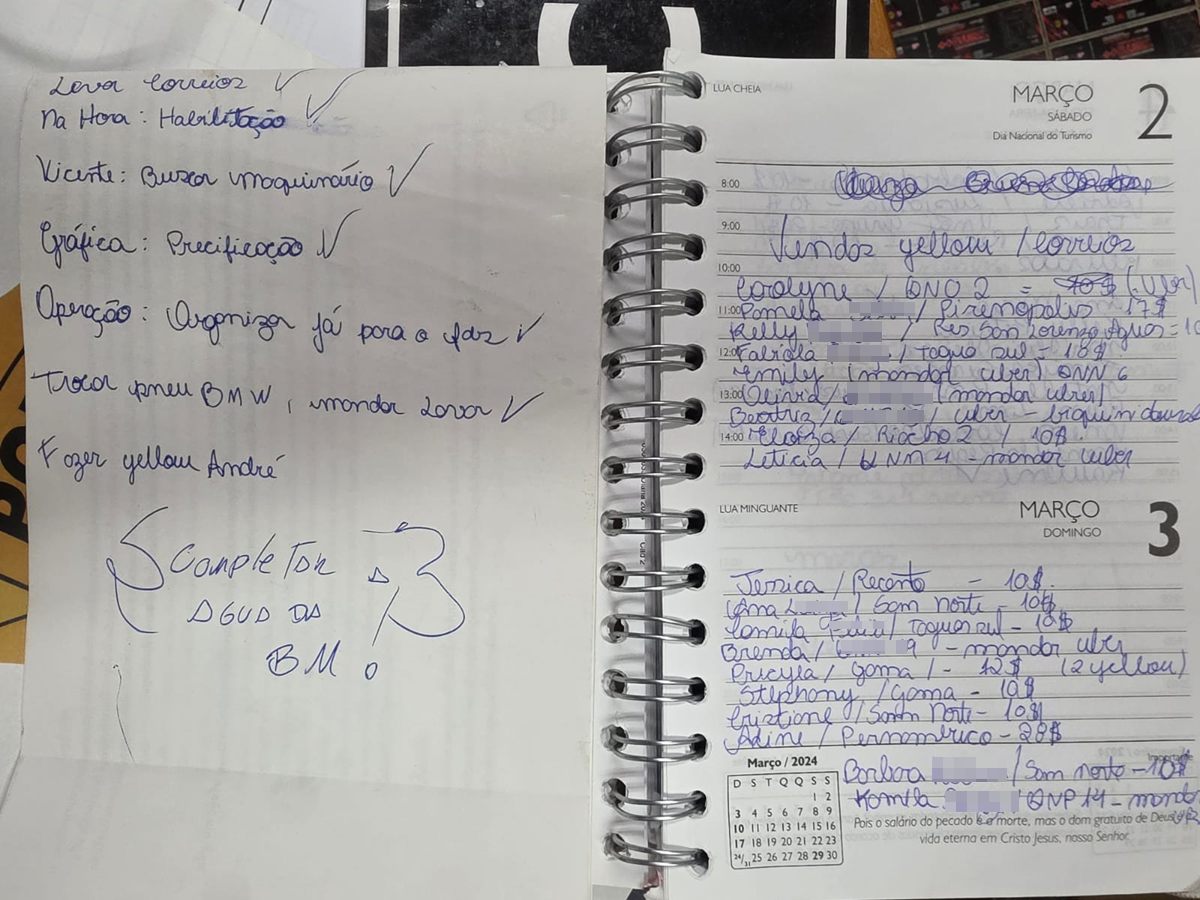 Levar Correios
Na Hora: Habilitação
Vicente: Buscar maquinário
Gráfica: Precificação
Operação: Organizar já para o fds
Trocar pneu BMW, mandar lavar
Fazer yellow André
COMPLETAR A
AGUA DA
BM.
LUA CHEIA
MARÇO 2
SÁBADO
Dia Nacional do Turismo
8:00
9:00
Vendas yellow / Correios
10:00
Carolyne / QNO 2 = (Uber)
11:00 Pamela / Pirenopolis 17$
Kelly / Res San Lorenzo Aguas = 1
12:00 Fabiola / Tagua sul - 10$
Emily (mandar uber) QNN 6
13:00 Olivia / (mandar uber)
Beatriz / / uber - biquini
14:00 / Riacho 2 / 10$.
Leticia / QNM 4 - mandar uber
LUA MINGUANTE
MARÇO 3
DOMINGO
Jessica / Recanto - 10$.
Ana / Sam norte - 10$
Camila / Tagua sul - 10$
Brenda / 9 - mandar uber
Pricyla / Gama / - 12$ (2 yellow)
Stephany / Gama - 10$
Cristiane / Sam Norte - 10$
Aline / Pernambuco - 28$
Importante
Barbara / Sam norte - 10$
Kamila / QNP 14 - mandar
Março / 2024
D S T Q Q S S
1 2
3 4 5 6 7 8 9
10 11 12 13 14 15 16
17 18 19 20 21 22 23
24/31 25 26 27 28 29 30
Pois o salário do pecado é a morte, mas o dom gratuito de Deus
vida eterna em Cristo Jesus, nosso Senhor.